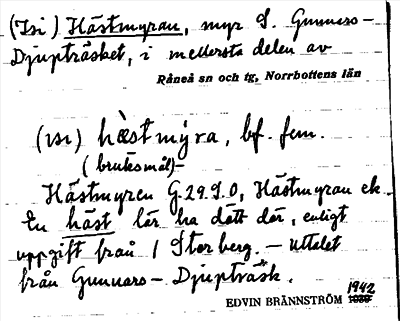 (Isi) Hästmyran, myr S. Gunnars-
Djupträsket, i mellersta delen av
Råneå sn och tg, Norrbottens län
(ısı) hästmýra, bf. fem.
(bruksmål)-
Hästmyren G.29.S.0, Hästmyran ek.
En häst lär ha dött där, enligt
uppgift från / Storberg. - Uttalet
från Gunnars-Djupträsk.
EDVIN BRÄNNSTRÖM 1942